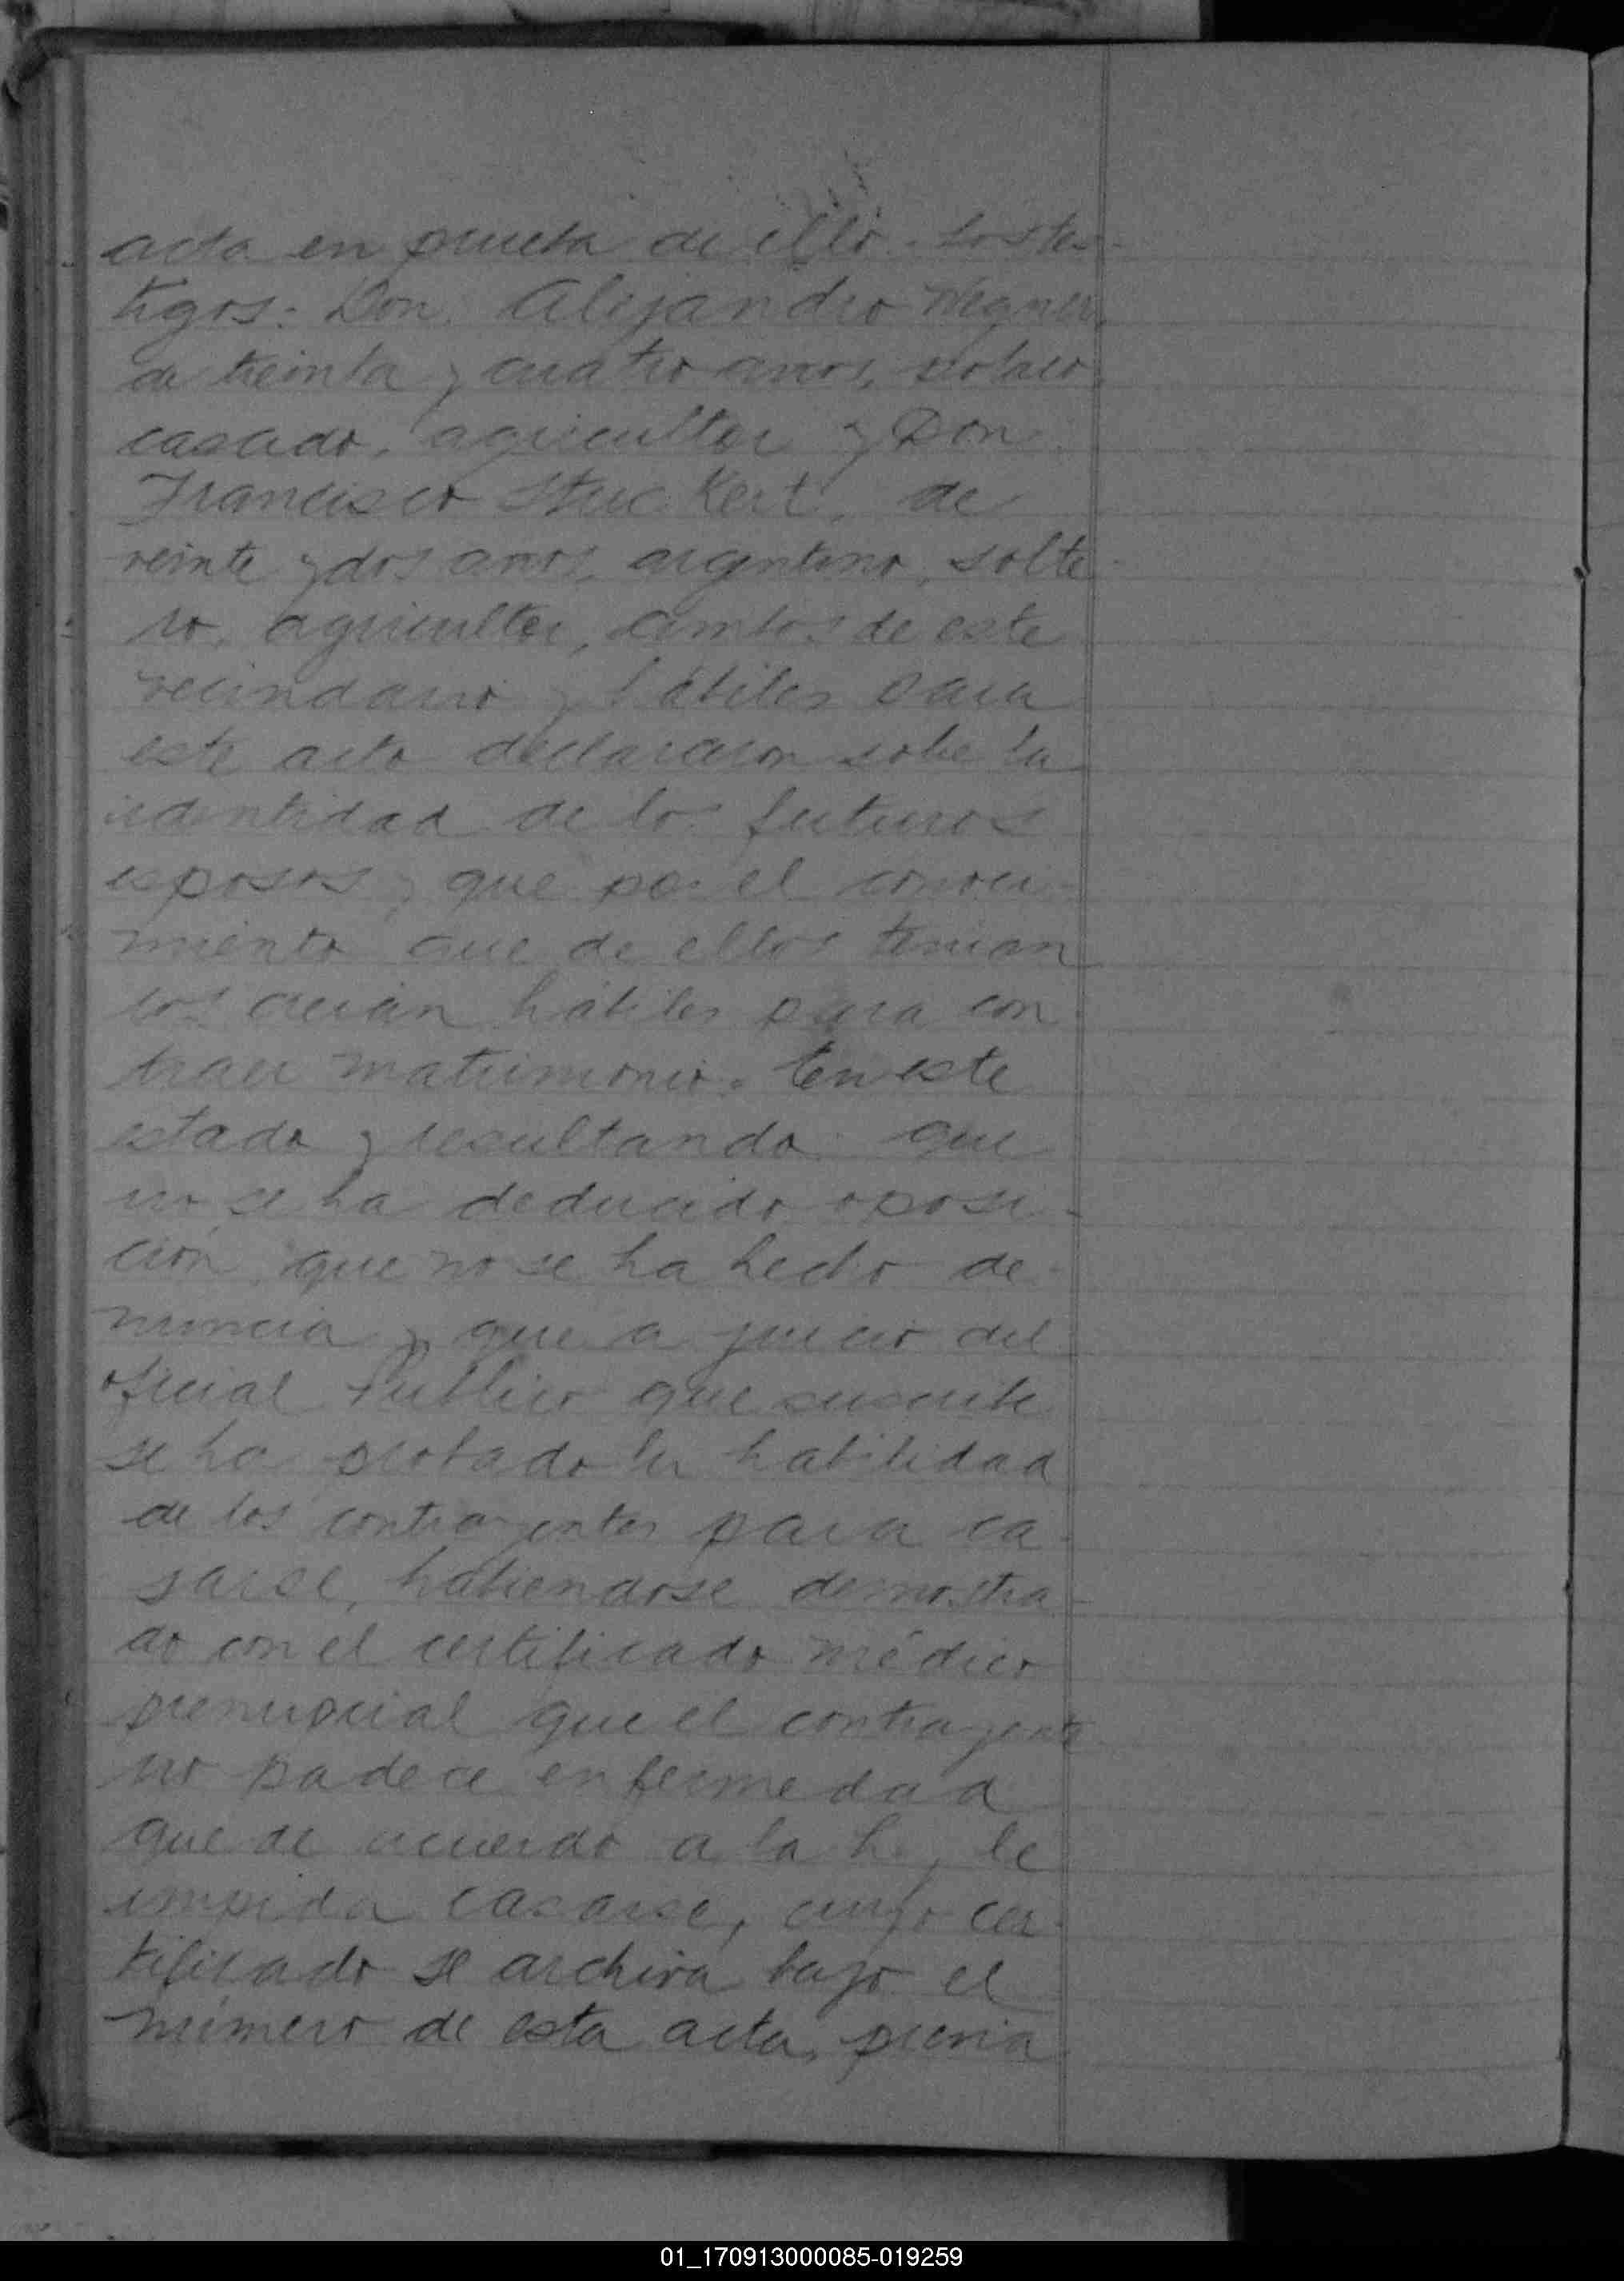 acta en prueba de ello. Los tes-
tigos: Don Alejandro Wagner,
de treinta y cuatro anos,
casado, agricultor y Don
Francisco Stuckert, de
veinte y dos anos, argentino, solte-
ro, agricultor, ambos de este
vecindario y hábiles para
este acto declararon sobre la
identidad de los futuros
esposos y que por el conoci-
miento que de ellos tenian
los creian hábiles para con
traer matrimonio. En este
estado y resultando que
no se ha deducido oposi-
ción, que no se ha hecho de-
nuncia y que a juicio del
oficial Publico que suscribe
se ha probado la habilidad
de los contrayentes para ca-
sarse, habiendose demostra-
do con el certificado médico
prenupcial que el contrayente
no padece enfermedad
que de acuerdo a la ley le
impida casarse, cuyo cer-
tificado se archiva bajo el
número de esta acta, previa
01_170913000085-019259